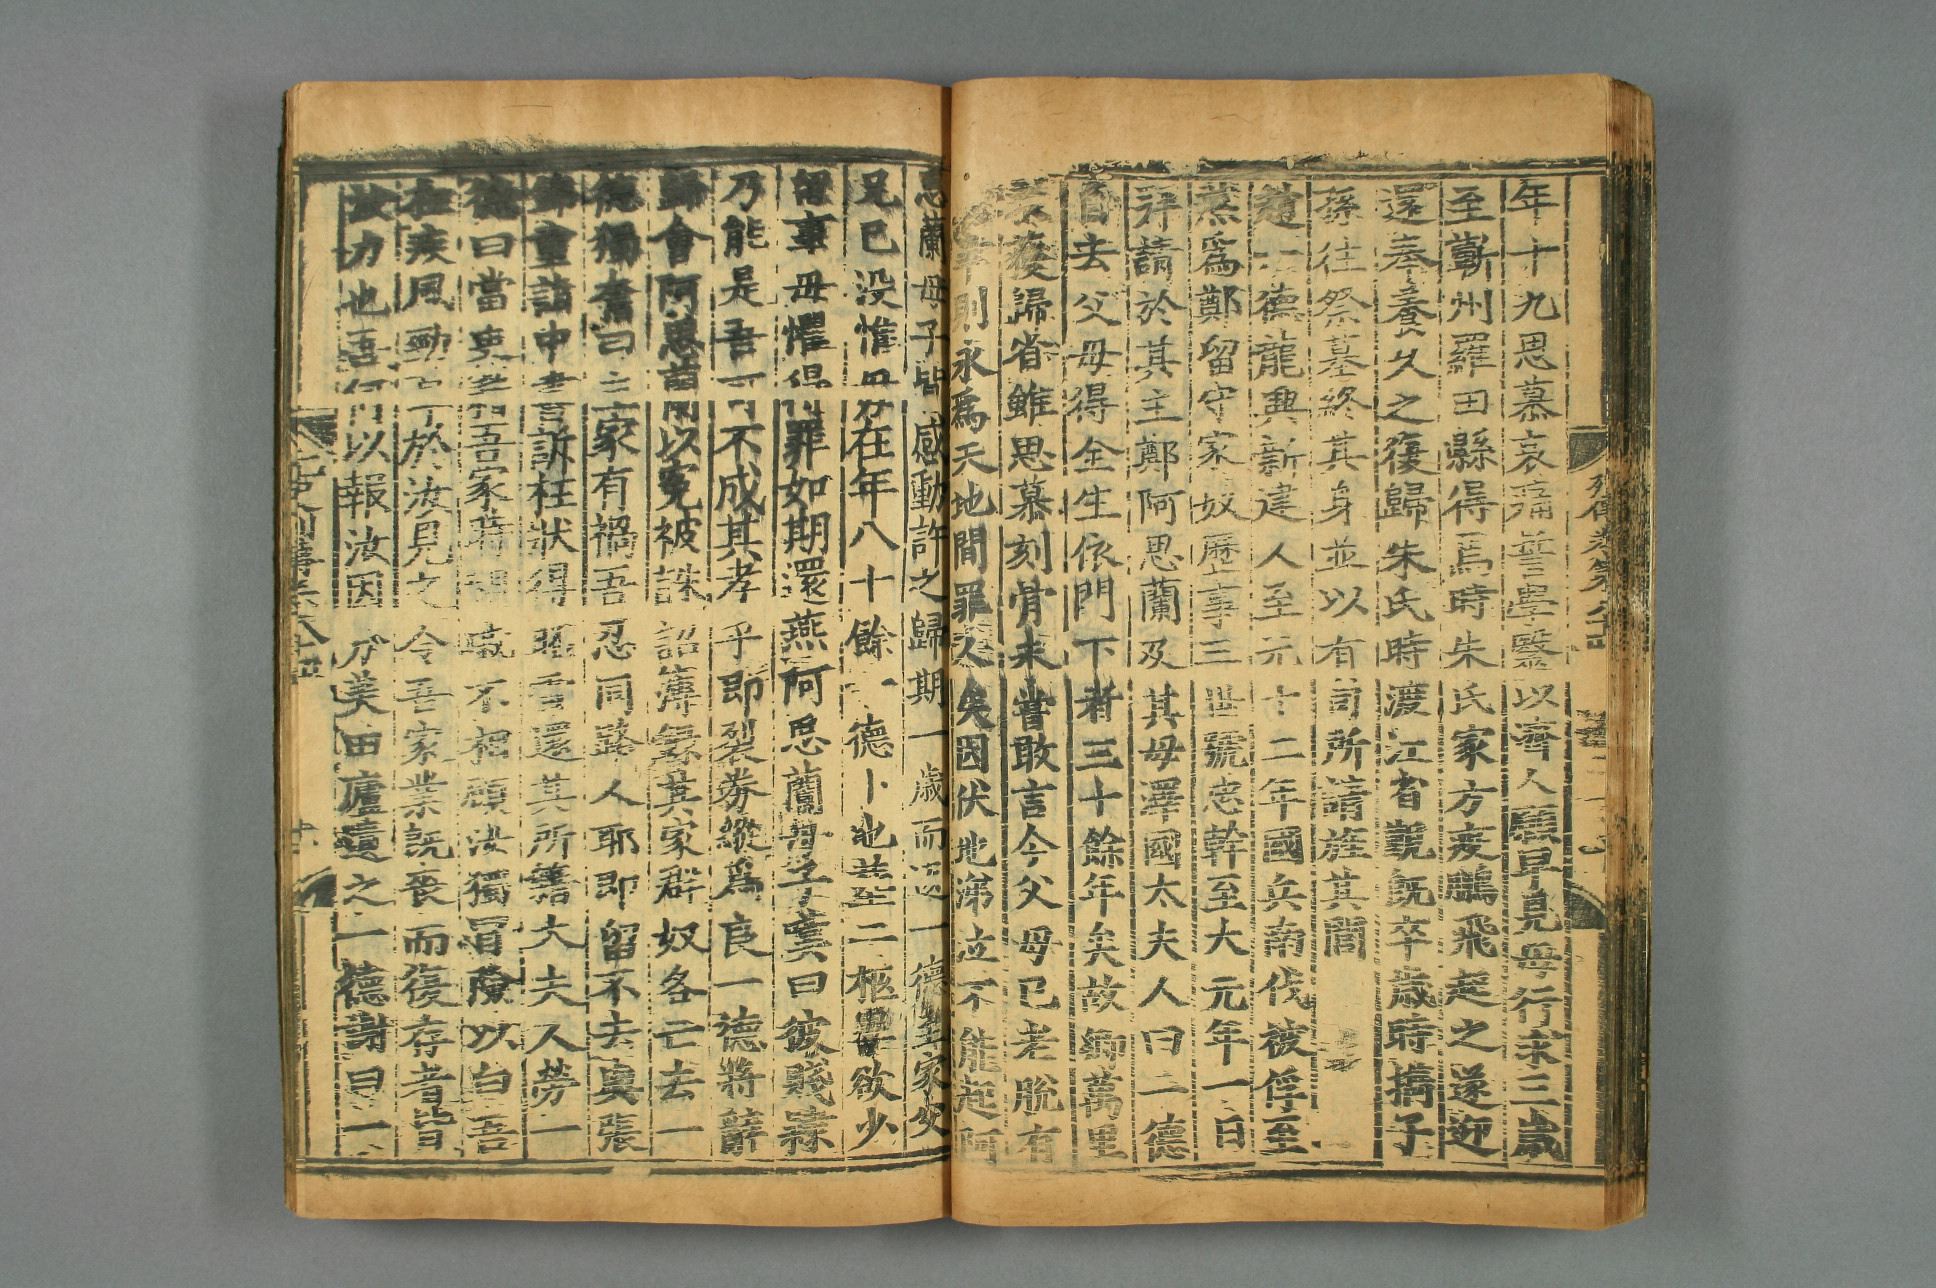 年十九思慕哀痛誓學醫以濟人願早見母行求三歲
至蘄州羅田縣得焉時朱氏家方疫鵬飛起之遂迎
還奉養久之復歸朱氏時渡江省覲既卒歲時攜子
孫往祭墓終其身並以有司所請旌其閭
趙一德龍興新建人至元十二年國兵南伐被俘至
燕爲鄭留守家奴歷事三世號忠幹至大元年一日
拜請於其主鄭阿思蘭及其母澤國太夫人曰一德
自去父母得全生依門下者三十餘年矣故鄉萬里
未獲歸省雖思慕刻骨未嘗敢言今父母已老脫有
不幸則永爲天地間罪人矣因伏地涕泣不能起阿
思蘭母子皆感動許之歸期一歲而返一德至家父
兄已没惟母在年八十餘一德卜地葬二柩畢欲少
留事母懼得罪如期還燕阿思蘭母子歎曰彼賤隸
乃能是吾可不成其孝乎即裂券縱爲良一德將辭
歸會阿思蘭以冤被誅詔簿錄其家群奴各亡去一
德獨奮曰主家有禍吾忍同路人耶即留不去與張
錦童詣中書訴枉狀得昭雪還其所籍太夫人勞一
德曰當吏籍吾家時親戚不相顧汝獨冒險以白吾
枉疾風勁草於汝見之令吾家業既喪而復存者皆
汝力也吾何以報汝因分美田廬遺之一德謝曰一
元史列傳卷八十四